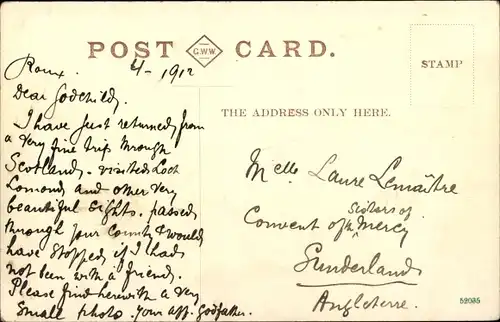 POST G.W.W. CARD.
STAMP
THE ADDRESS ONLY HERE.
Roux 4-1912
Dear Godchild,
I have just returned from
a very fine trip through
Scotland - visited Loch
Lomond and other very
beautiful sights. passed
through your County & would
have stopped if I had
not been with a friend.
Please find herewith a very
small photo. Your aff. Godfather.
Melle Laure Lemaître
Convent of the Sisters of Mercy
Sunderland
Angleterre.
52035